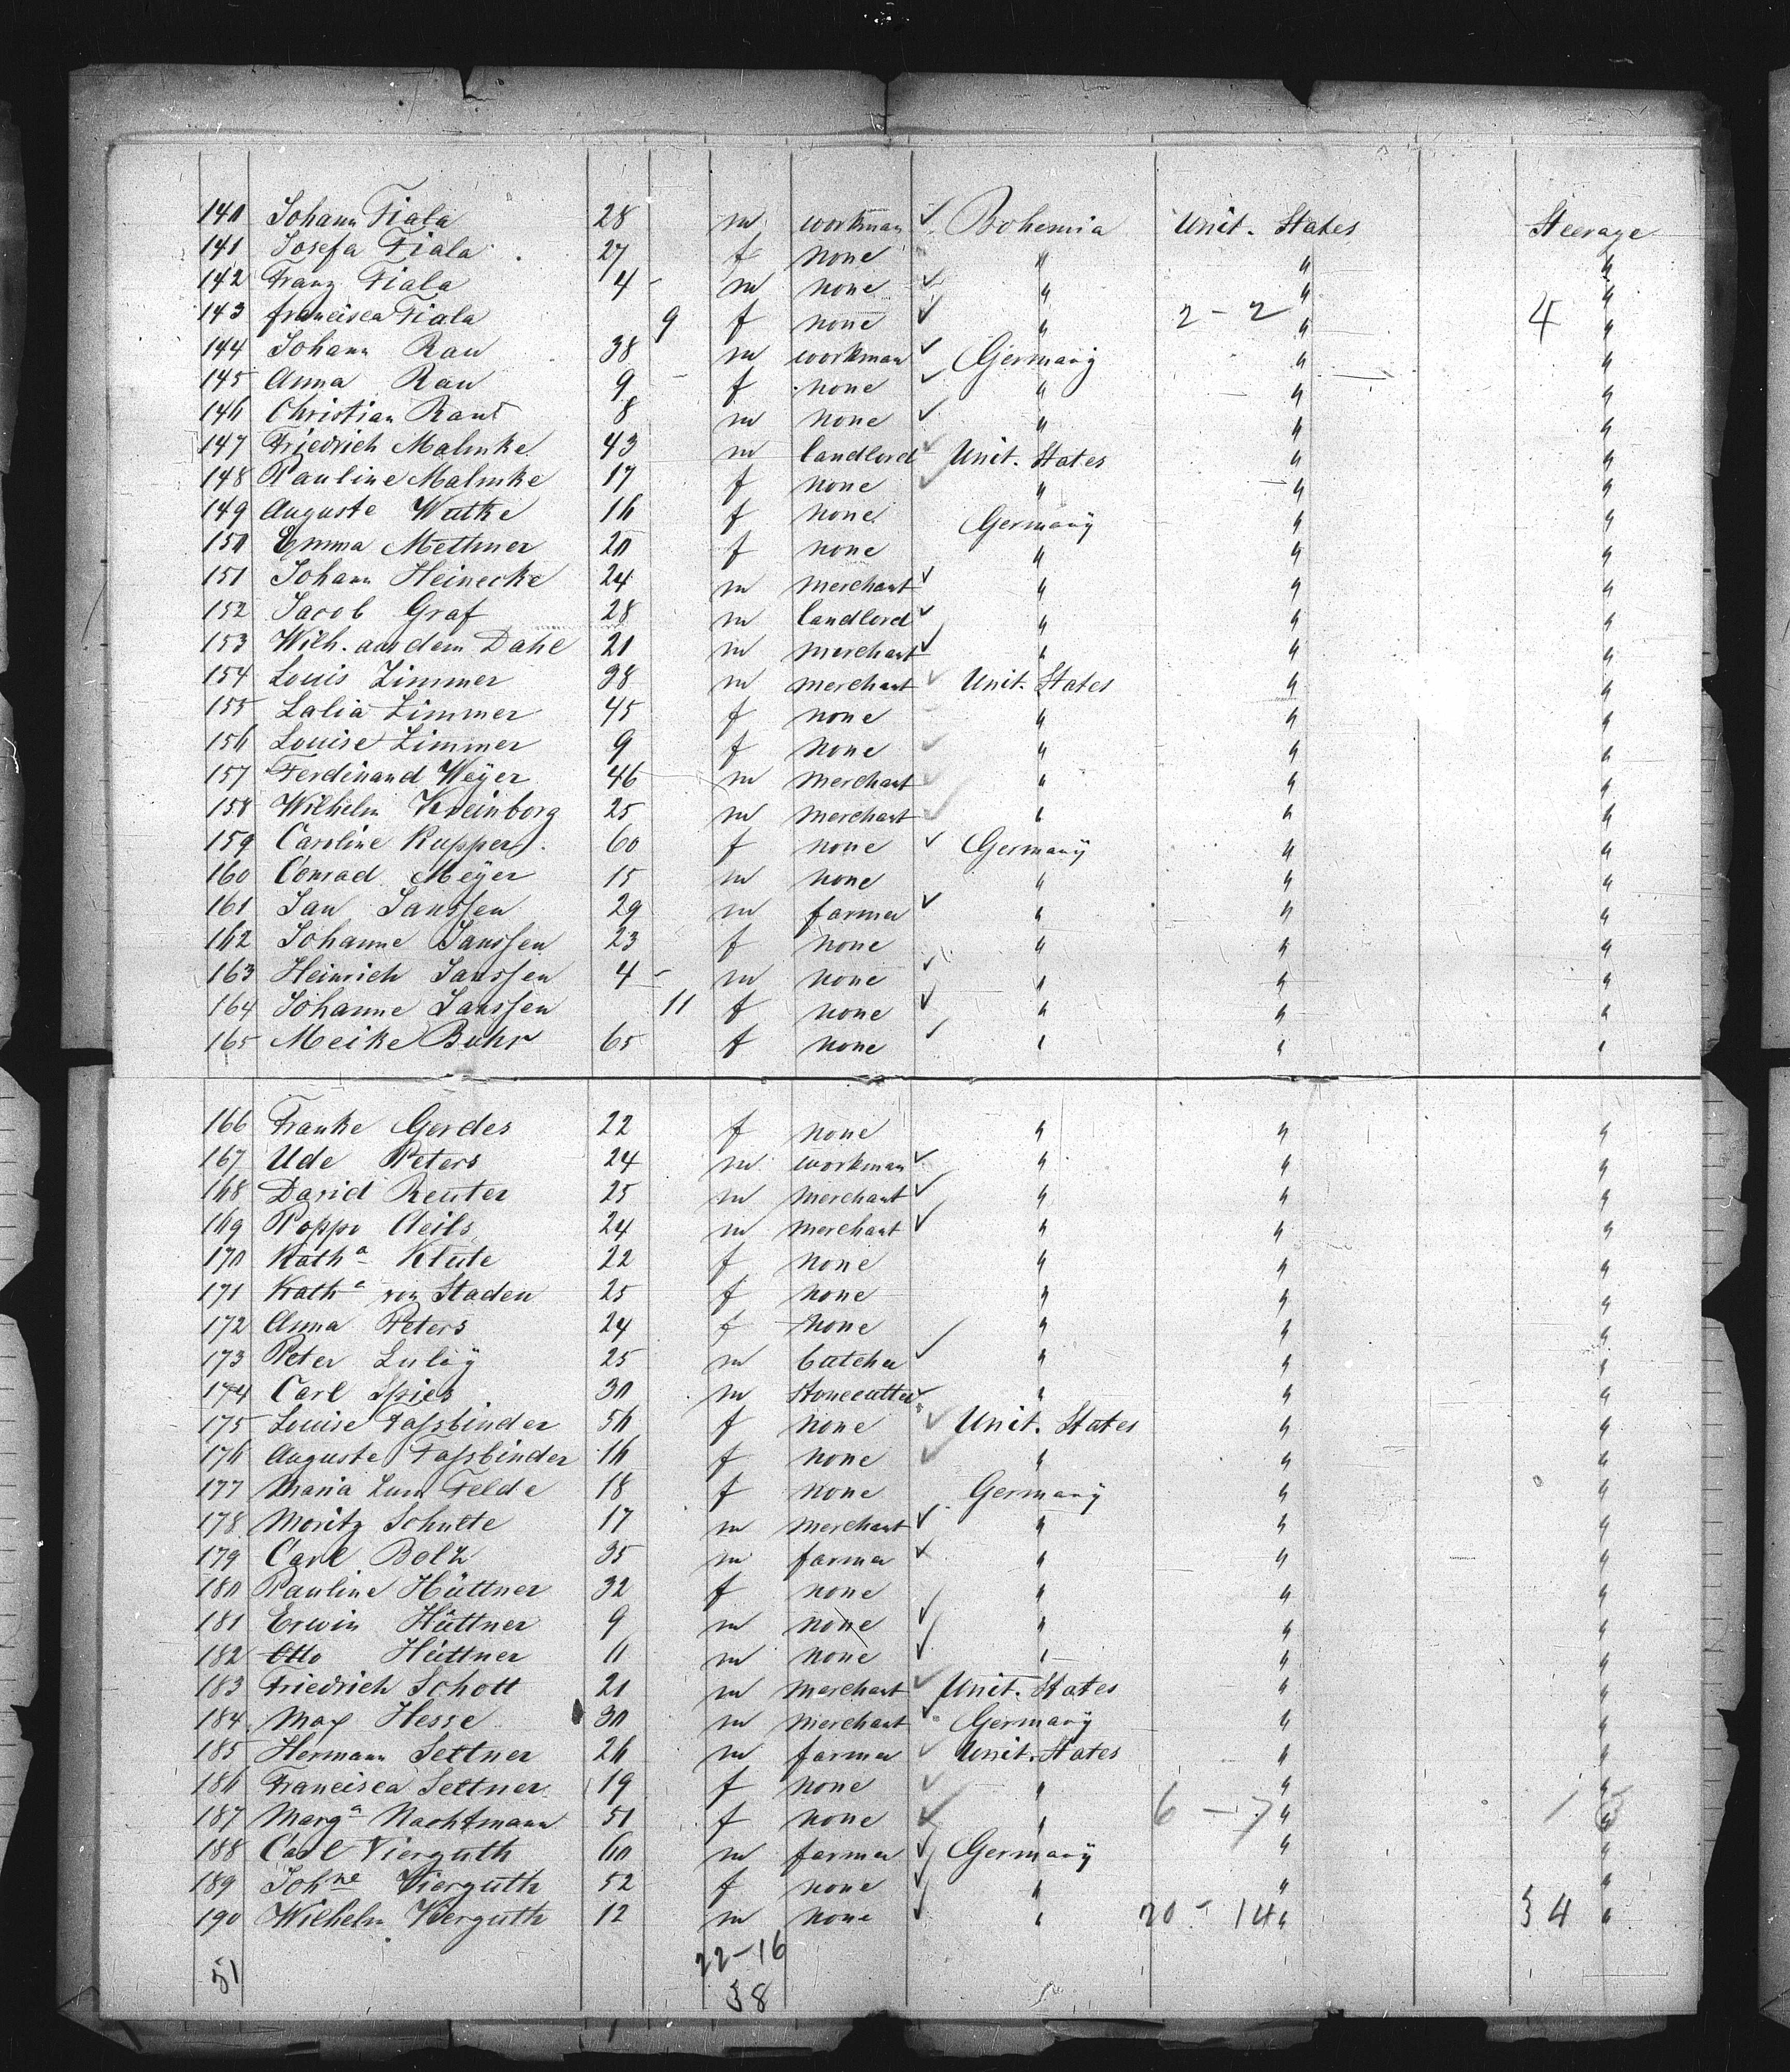 140 Johann Fiala 28 m workman ✓ Bohemia Unit. States Steerage
141 Josefa Fiala 27 f none " " "
142 Franz Fiala 4 - m none ✓ " " "
143 francisca Fiala 9 f none ✓ " 2 - 2 " 4 "
144 Johann Rau 38 m workman ✓ Germany " "
145 Anna Rau 9 - f none ✓ " " "
146 Christian Rau 8 m none ✓ " " "
147 Friedrich Malmke 43 m landlord ✓ Unit. States " "
148 Pauline Malmke 17 f none ✓ " " "
149 Auguste Watke 16 f none Germany " "
150 Emma Methner 20 f none " " "
151 Johann Heinecke 24 m merchant ✓ " " "
152 Jacob Graf 28 m landlord ✓ " " "
153 Wilh. aus dem Dahl 21 m merchant ✓ " " "
154 Louis Zimmer 38 m merchant ✓ Unit. States " "
155 Lalia Zimmer 45 f none " " "
156 Louise Zimmer 9 f none ✓ " " "
157 Ferdinand Weÿer 46 m merchant ✓ " " "
158 Wilhelm Kreinborg 25 m merchant ✓ " " "
159 Caroline Ruppert 60 f none ✓ Germany " "
160 Conrad Meÿer 15 m none " " "
161 Jan Janssen 29 m farmer ✓ " " "
162 Johanne Janssen 23 f none " " "
163 Heinrich Janssen 4 - m none ✓ " " "
164 Johanne Janssen 11 f none ✓ " " "
165 Meike Buhr 65 f none ✓ " " "
166 Frauke Gerdes 22 f none " " "
167 Ude Peters 24 m workman ✓ " " "
168 David Reuter 25 m merchant ✓ " " "
169 Poppo Cleils 24 m merchant ✓ " " "
170 Kath a Klute 22 f none " " "
171 Kath a von Staden 25 f none " " "
172 Anna Peters 24 f none " " "
173 Peter Luleÿ 25 m butcher ✓ " " "
174 Carl Spies 30 m stonecutter ✓ " " "
175 Louise Fassbinder 56 f none ✓ Unit. States " "
176 Auguste Fassbinder 16 f none ✓ " " "
177 Maria Zum Felde 18 f none Germany " "
178 Moritz Schulte 17 m merchant ✓ " " "
179 Carl Bolz 35 m farmer ✓ " " "
180 Pauline Hüttner 32 f none " " "
181 Erwin Hüttner 9 m none ✓ " " "
182 Otto Hüttner 11 m none ✓ " " "
183 Friedrich Schott 21 m merchant ✓ Unit. States " "
184 Max Hesse 30 m merchant ✓ Germany " "
185 Hermann Settner 26 m farmer ✓ Unit. States " "
186 Francisca Settner 19 f none ✓ " " "
187 Marg a Nachtmann 51 f none ✓ " 6 - 7 " "
188 Carl Vierguth 60 m farmer ✓ Germany " "
189 Joh ne Vierguth 52 f none ✓ " " "
190 Wilhelm Vierguth 12 m none ✓ " 20 - 14 " 34 "
51 22-16
38